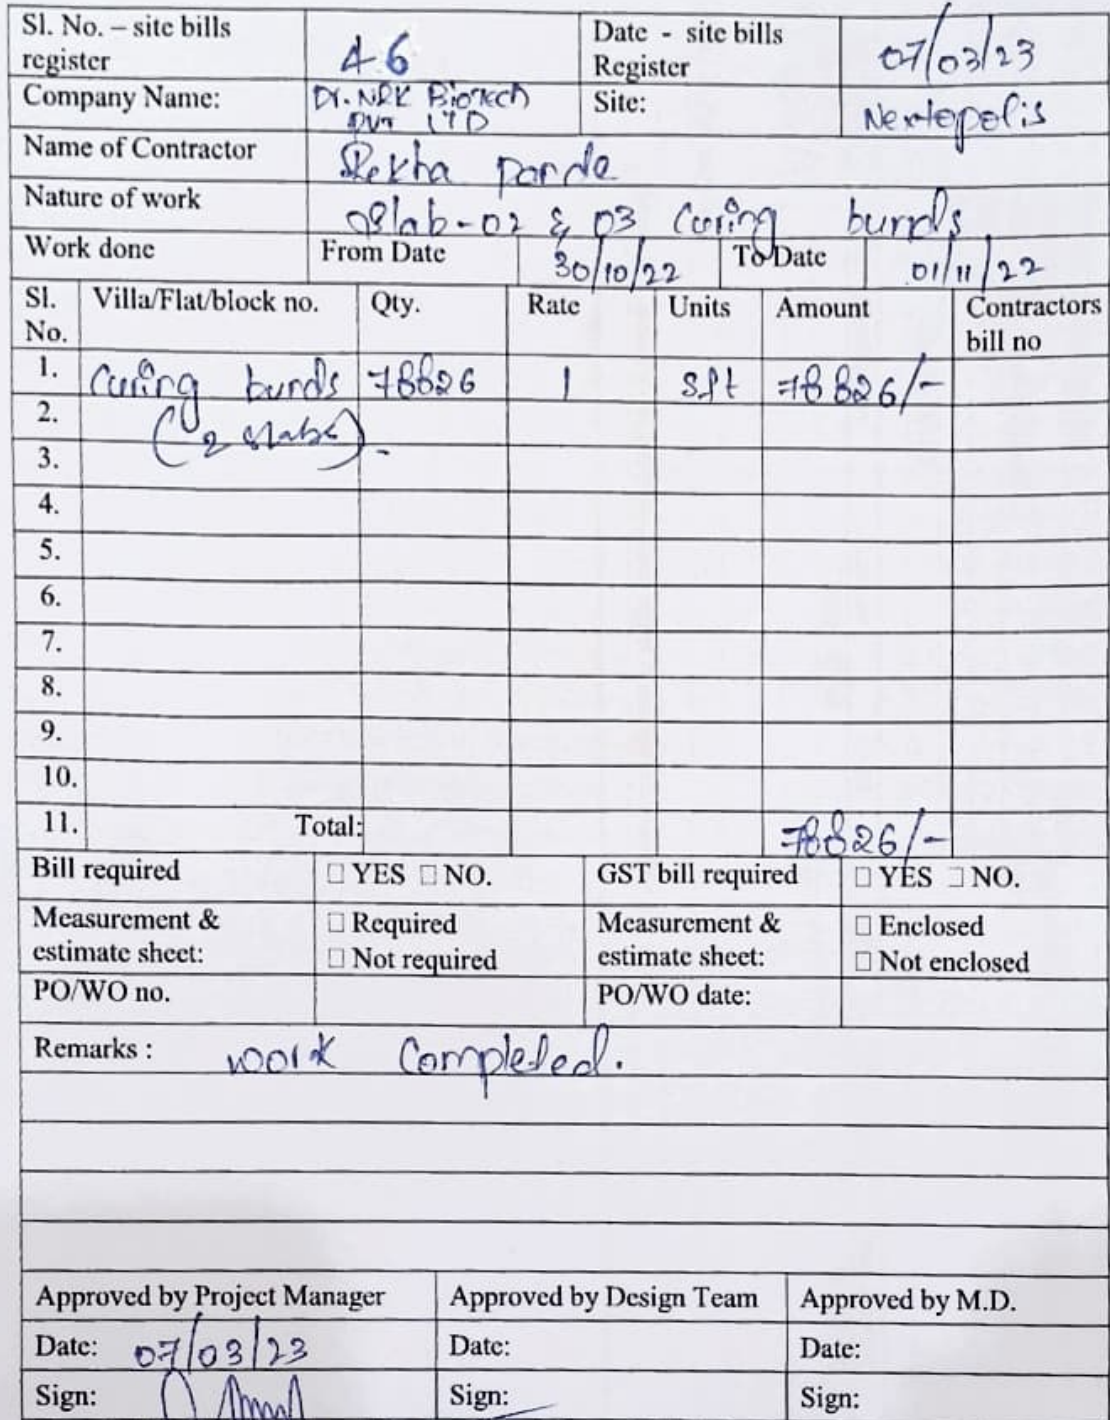 Sl. No. – site bills register 46 Date - site bills Register 07/03/23
Company Name: Dr. NRK Biotech Pvt LTD Site: Nextopolis
Name of Contractor Rekha Pande
Nature of work Slab-02 & 03 Curing bunds
Work done From Date 30/10/22 To Date 01/11/22
Sl. No. Villa/Flat/block no. Qty. Rate Units Amount Contractors bill no
1. Curing bunds 78826 1 Sft 78826/-
2. (2 slabs).
3.
4.
5.
6.
7.
8.
9.
10.
11. Total: 78826/-
Bill required □ YES □ NO. GST bill required □ YES □ NO.
Measurement & estimate sheet: □ Required □ Not required Measurement & estimate sheet: □ Enclosed □ Not enclosed
PO/WO no. PO/WO date:
Remarks : work Completed.
Approved by Project Manager Approved by Design Team Approved by M.D.
Date: 07/03/23 Date: Date:
Sign: Sign: Sign: